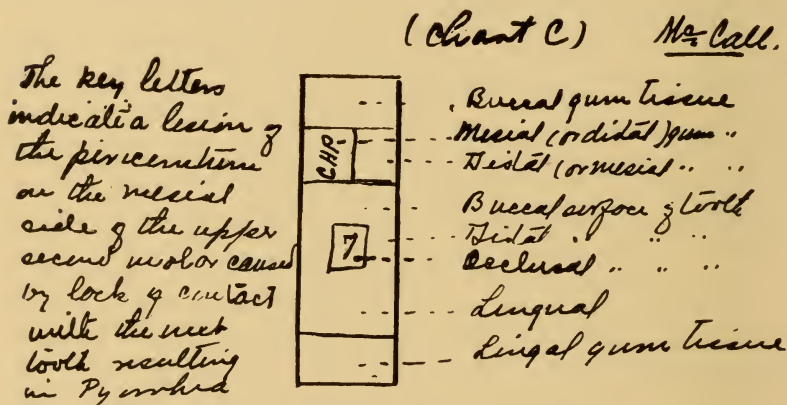 (Chart C) Mc Call.
The key letters
indicate a lesion of
the pericementum
on the mesial
side of the upper
second molar caused
by lack of contact
with the next
tooth resulting
in Pyorrhea
CHP.
7
Buccal gum tissue
Mesial (or distal) gum "
Distal (or mesial " "
Buccal surface of tooth
Distal " " "
Occlusal " " "
Lingual
Lingal gum tissue